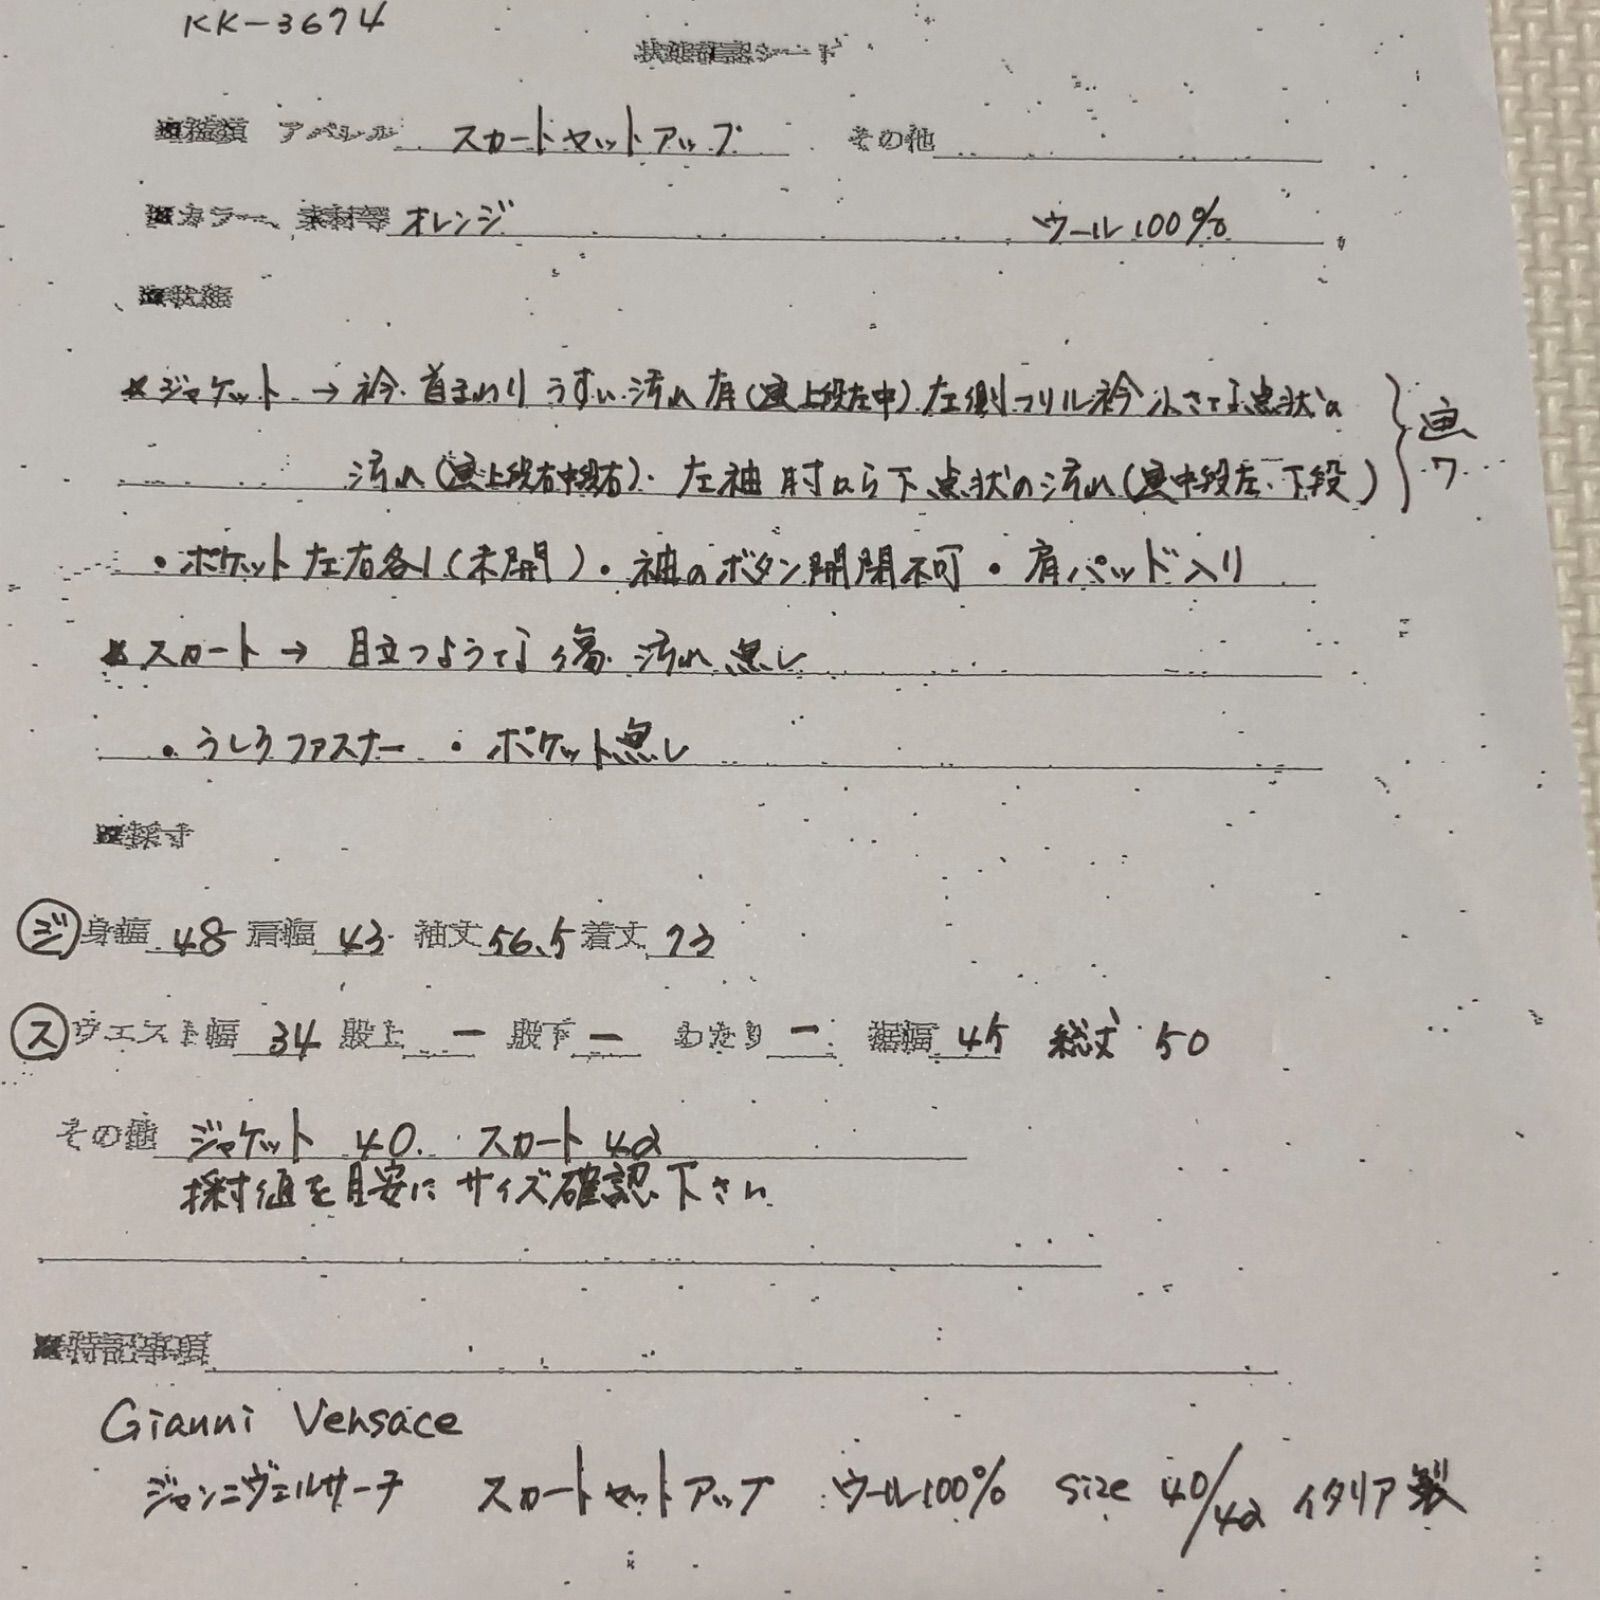 KK-3674
状態確認シート
■種類 アパレル スカートセットアップ その他
■カラー、素材等 オレンジ ウール100%
■状態
*ジャケット→衿・首まわりうすい汚れ有(画上段左中)左側フリル衿小さな点状の
汚れ(画上段右中段右)・左袖肘から下点状の汚れ(画中段左・下段) 画7
・ポケット左右各1(未開)・袖のボタン開閉不可・肩パッド入り
*スカート→目立つような傷汚れ無し
・うしろファスナー ・ポケット無し
■採寸
ジ 身幅 48 肩幅 43 袖丈 56.5 着丈 73
ス ウエスト幅 34 股上 ー 股下 ー わたり ー 裾幅 45 総丈 50
その他 ジャケット 40. スカート 42
採寸値を目安にサイズ確認下さい
■特記事項
Gianni Versace
ジャンニヴェルサーチ スカートセットアップ ウール100% size 40/42 イタリア製